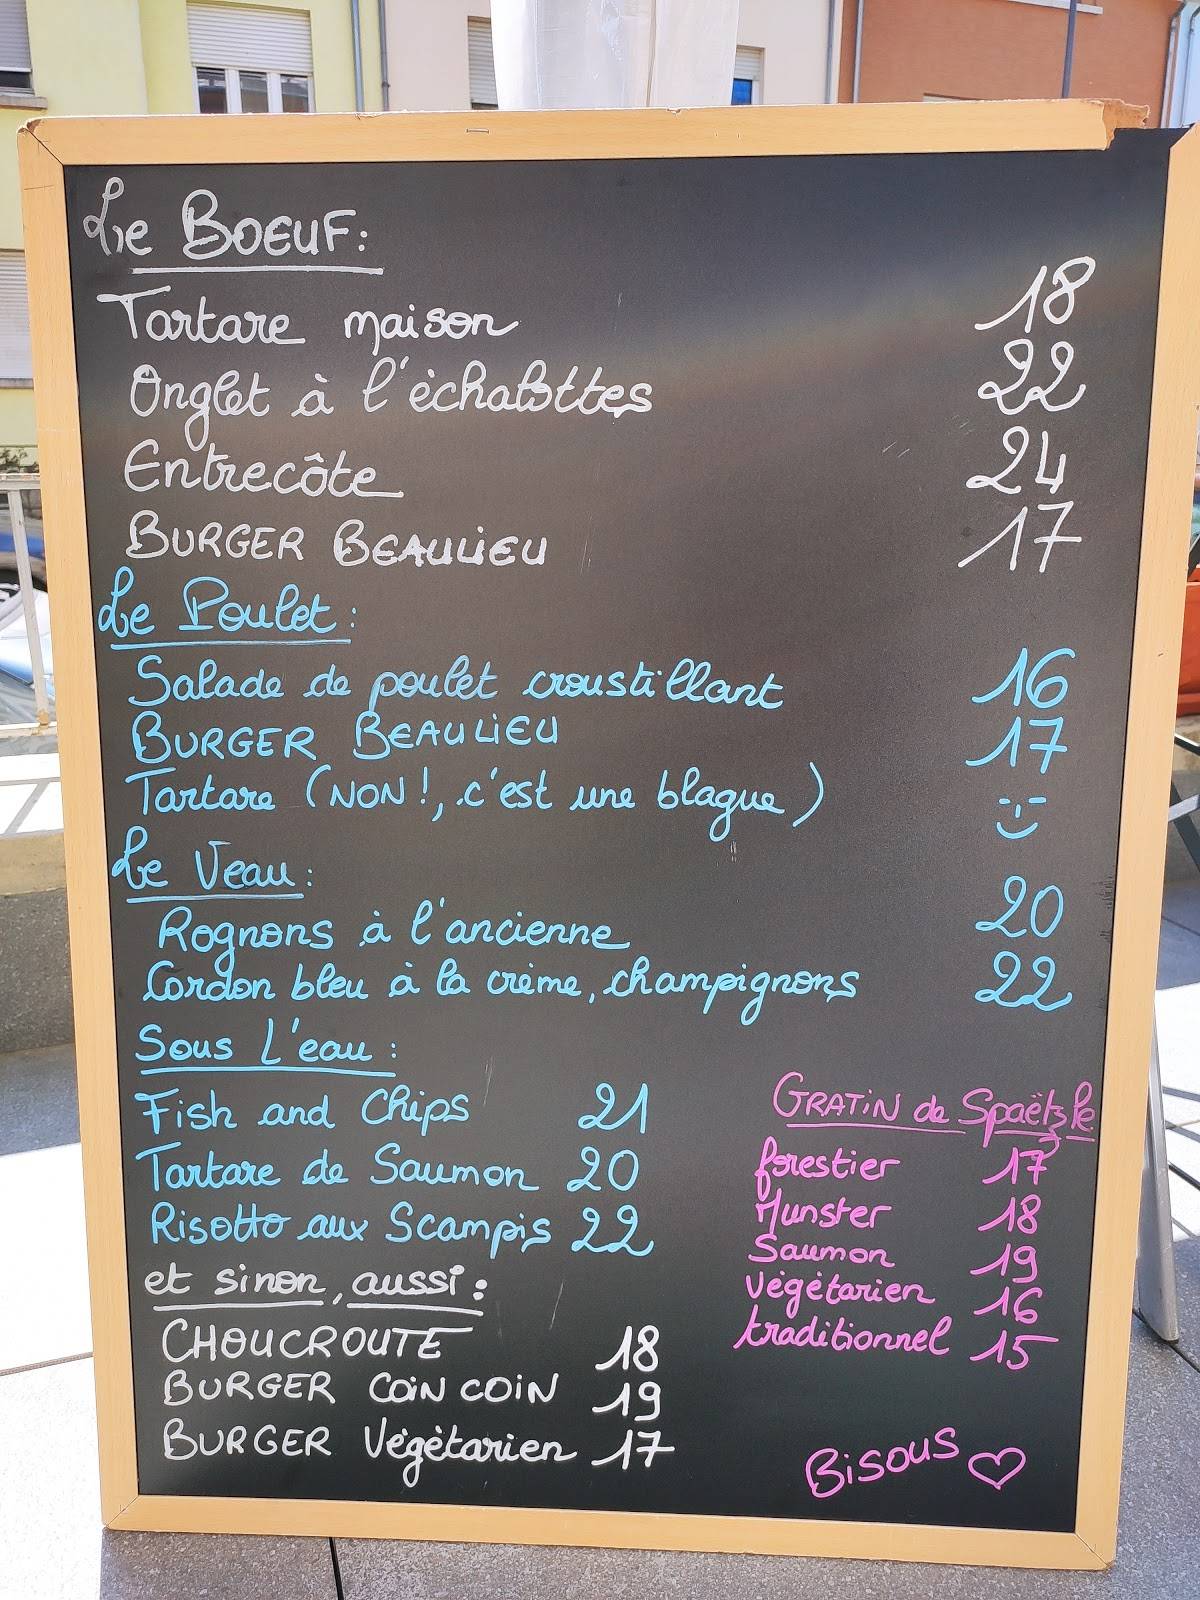 Le BOEUF:
Tartare maison 18
Onglet à l'échalottes 22
Entrecôte 24
BURGER BEAULIEU 17
Le Poulet:
Salade de poulet croustillant 16
BURGER BEAULIEU 17
Tartare (NON!, c'est une blague)
Le Veau:
Rognons à l'ancienne 20
Cordon bleu à la crème, champignons 22
Sous L'eau:
Fish and Chips 21
Tartare de Saumon 20
Risotto aux Scampis 22
et sinon, aussi:
CHOUCROUTE 18
BURGER COIN COIN 19
BURGER Végétarien 17
GRATIN de Spaëtzle
forestier 17
Munster 18
Saumon 19
végétarien 16
traditionnel 15
BISOUS